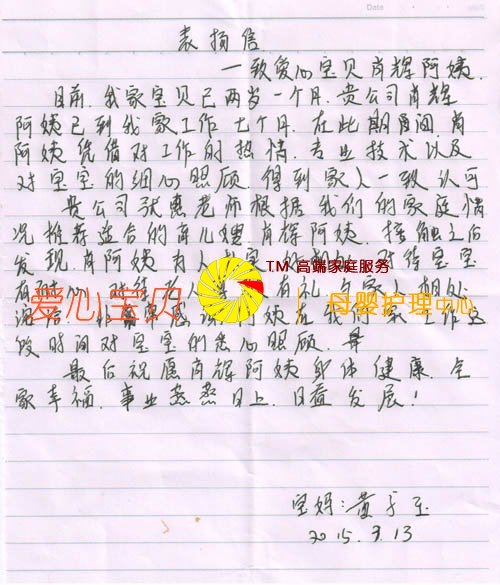 Date
表扬信
—致爱心宝贝肖辉阿姨.
目前.我家宝贝已两岁一个月.贵公司肖辉
阿姨已到我家工作七个月.在此期间.肖
阿姨凭借对工作的热情.专业技术以及
对宝宝的细心照顾.得到家人一致认可
贵公司张惠老师根据我们的家庭情
况推荐适合的育儿嫂肖辉阿姨.接触之后
发现肖阿姨为人 对待宝宝
TM 高端家庭服务
有 人 有礼.与家人相处
爱心宝贝 母婴护理中心
阿姨在我们家工作这
段时间对宝宝的悉心照顾.
最后祝愿肖辉阿姨身体健康.全
家幸福.事业蒸蒸日上.日益发展!
宝妈:黄
2015.9.13